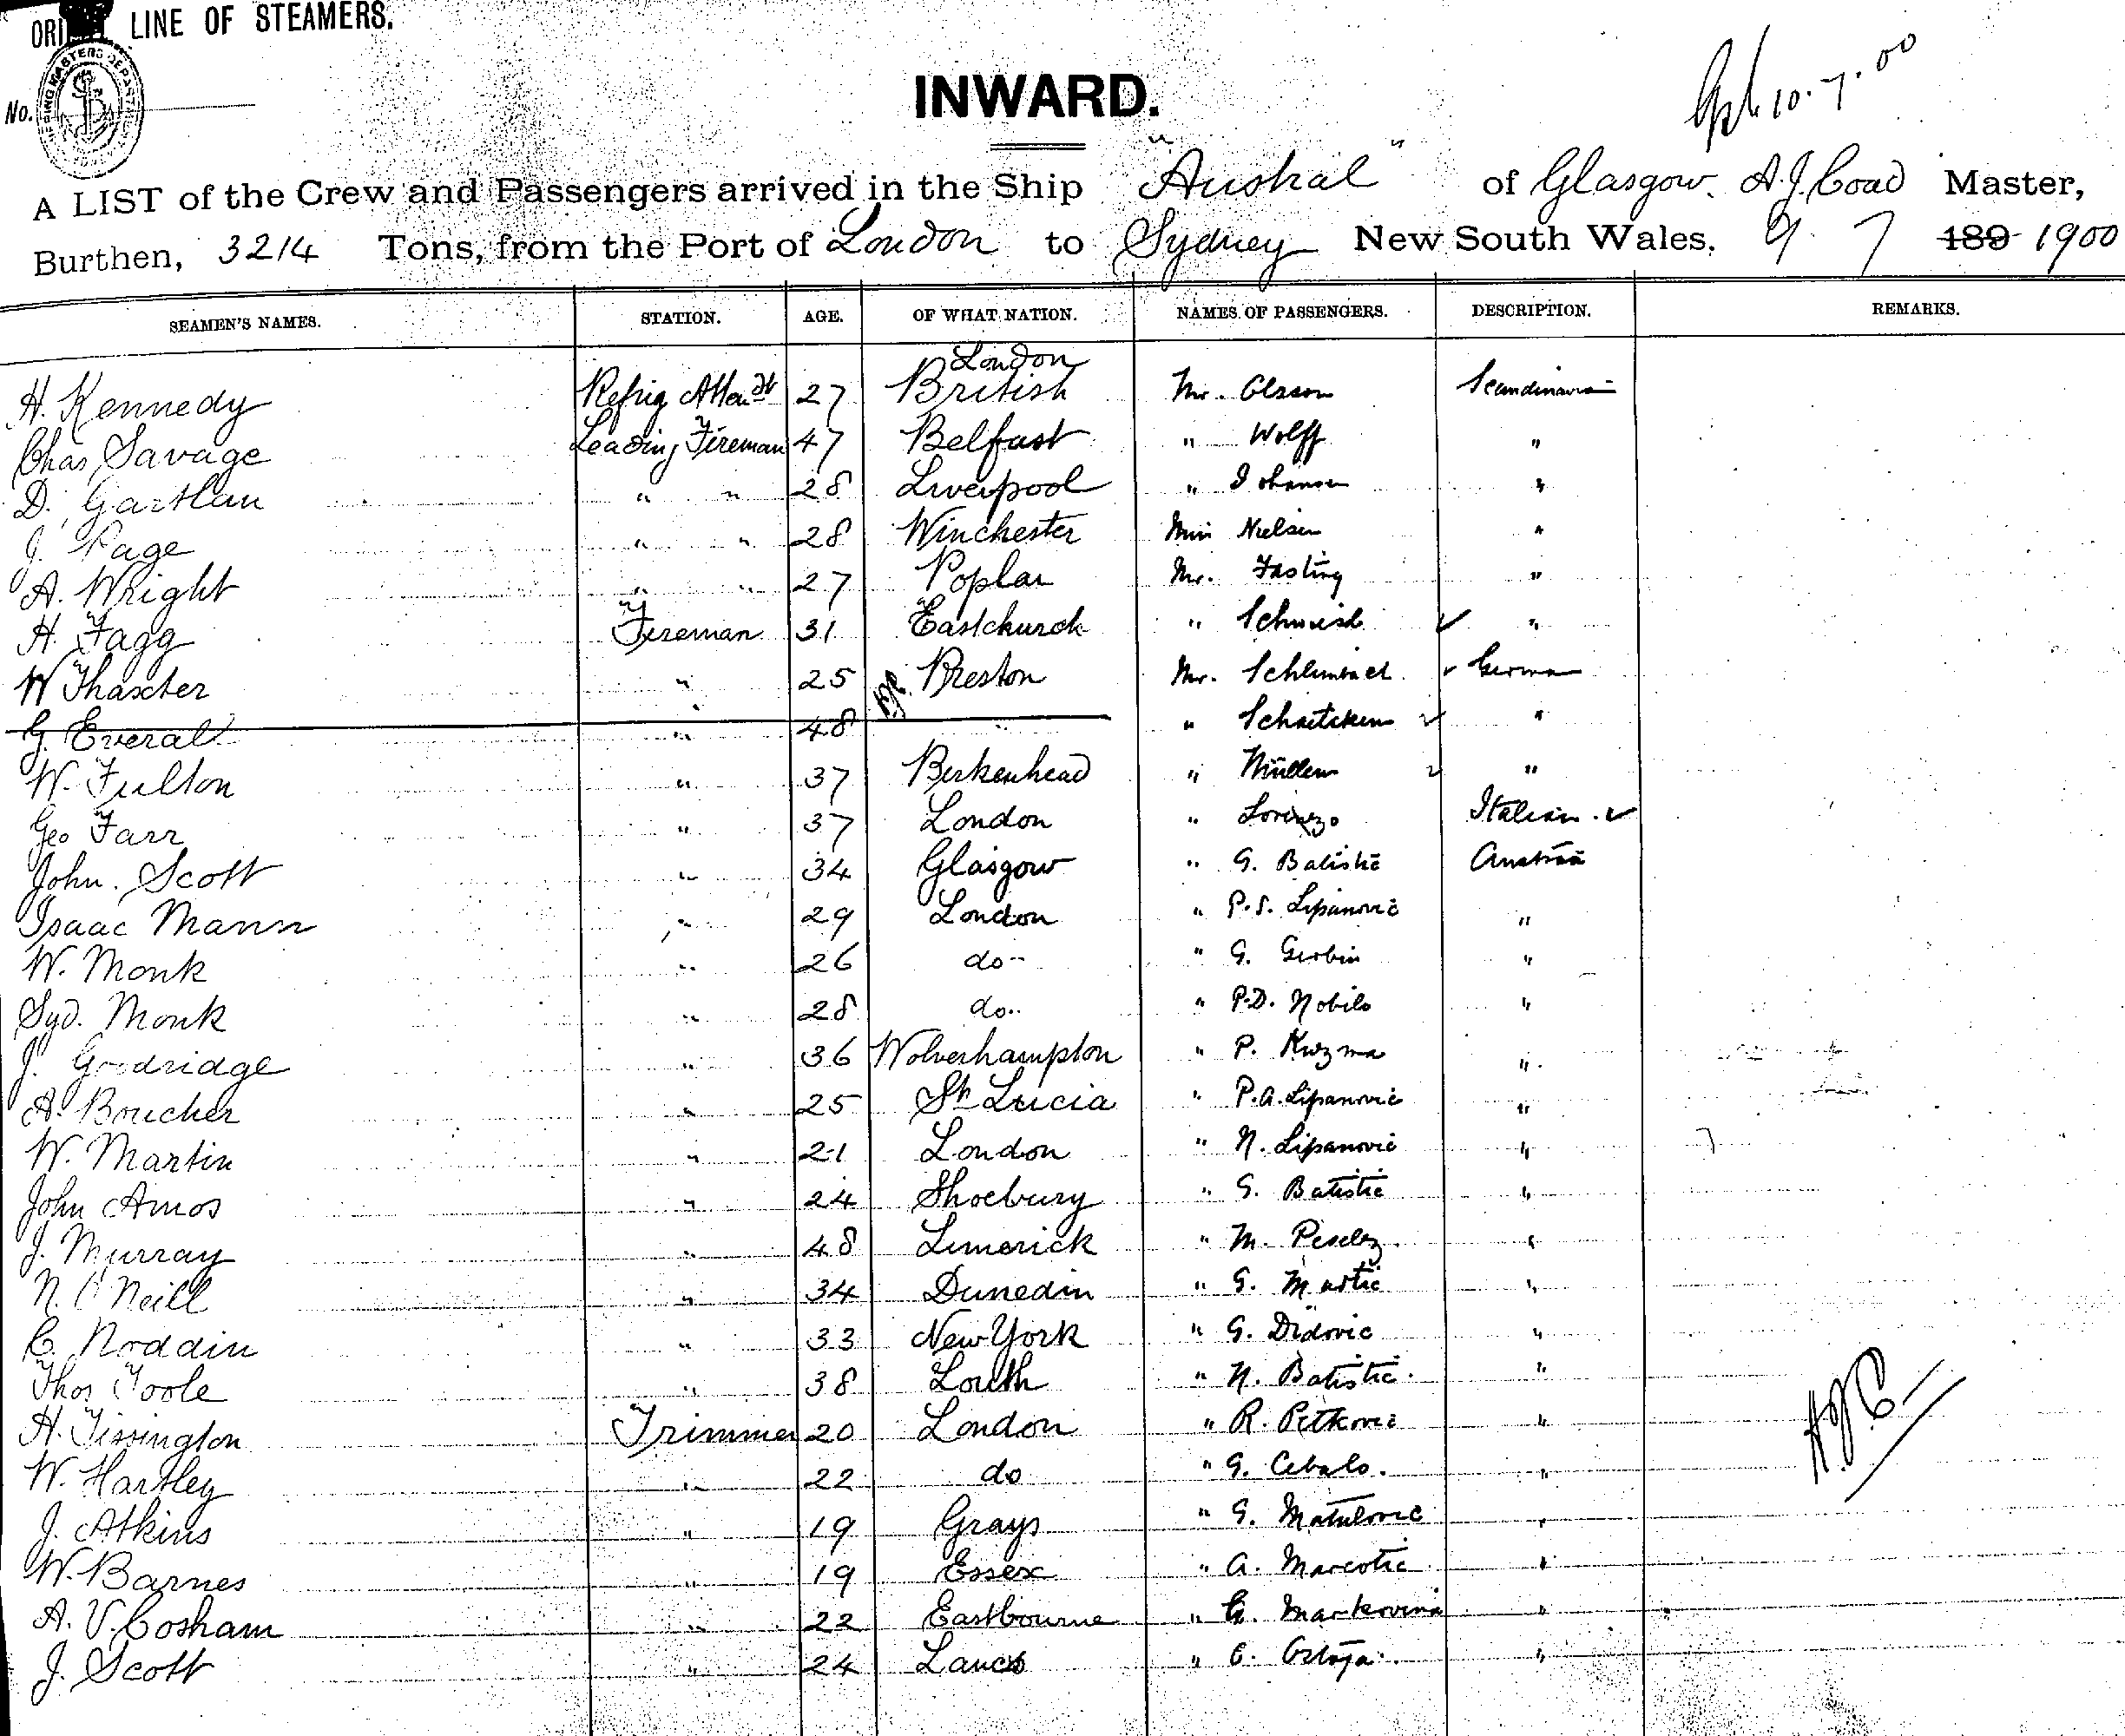 LINE OF STEAMERS.
No.
INWARD.
10.7.00
A LIST of the Crew and Passengers arrived in the Ship "Austral" of Glasgow. A.J. Coad Master,
Burthen, 3214 Tons, from the Port of London to Sydney New South Wales, 9. 7 189 1900
SEAMEN'S NAMES. STATION. AGE. OF WHAT NATION. NAMES OF PASSENGERS. DESCRIPTION. REMARKS.
London
H. Kennedy Refrig Attendt 27 British Mr. Olsson Scandinavia
Chas Savage Leading Fireman 47 Belfast " Wolff "
D. Gartlan " " 28 Liverpool " Johansen "
J. Page " " 28 Winchester Miss Nielsen "
A. Wright " " 27 Poplar Mr. Fasting "
H. Fagg Fireman 31 Eastchurch " "
W Thaxter " 25 Preston Mr. German
G. Everal " 48 " "
W. Fulton " 37 Birkenhead " Müller "
Geo Farr " 37 London " Lorenzo Italian
John. Scott " 34 Glasgow " G. Batistic Austria
Isaac Mann " 29 London " P.S. Lipanovic "
W. Monk " 26 do " G. Gerbin "
Syd. Monk " 28 do " P.D. Nobilo "
J. Goodridge " 36 Wolverhampton " P. Kuzma "
A. Boucher " 25 St Lucia " P.A. Lipanovic "
W. Martin " 21 London " N. Lipanovic "
John Amos " 24 Shoebury " G. Batistic "
J. Murray " 48 Limerick " M. "
N. O'Neill " 34 Dunedin " G. Martic "
C. Noddin " 33 New York " G. Didovic "
Thos Toole " 38 Louth " N. Batistic. "
H. Tissington Trimmer 20 London " R. Petkovic "
W. Hartley " 22 do " G. Cebalo. "
J. Atkins " 19 Grays " G. Matulovic "
W. Barnes " 19 Essex " A. Marcotic "
A. V. Cosham " 22 Eastbourne " G. Markovina "
J. Scott " 24 Lancs " "
AJC